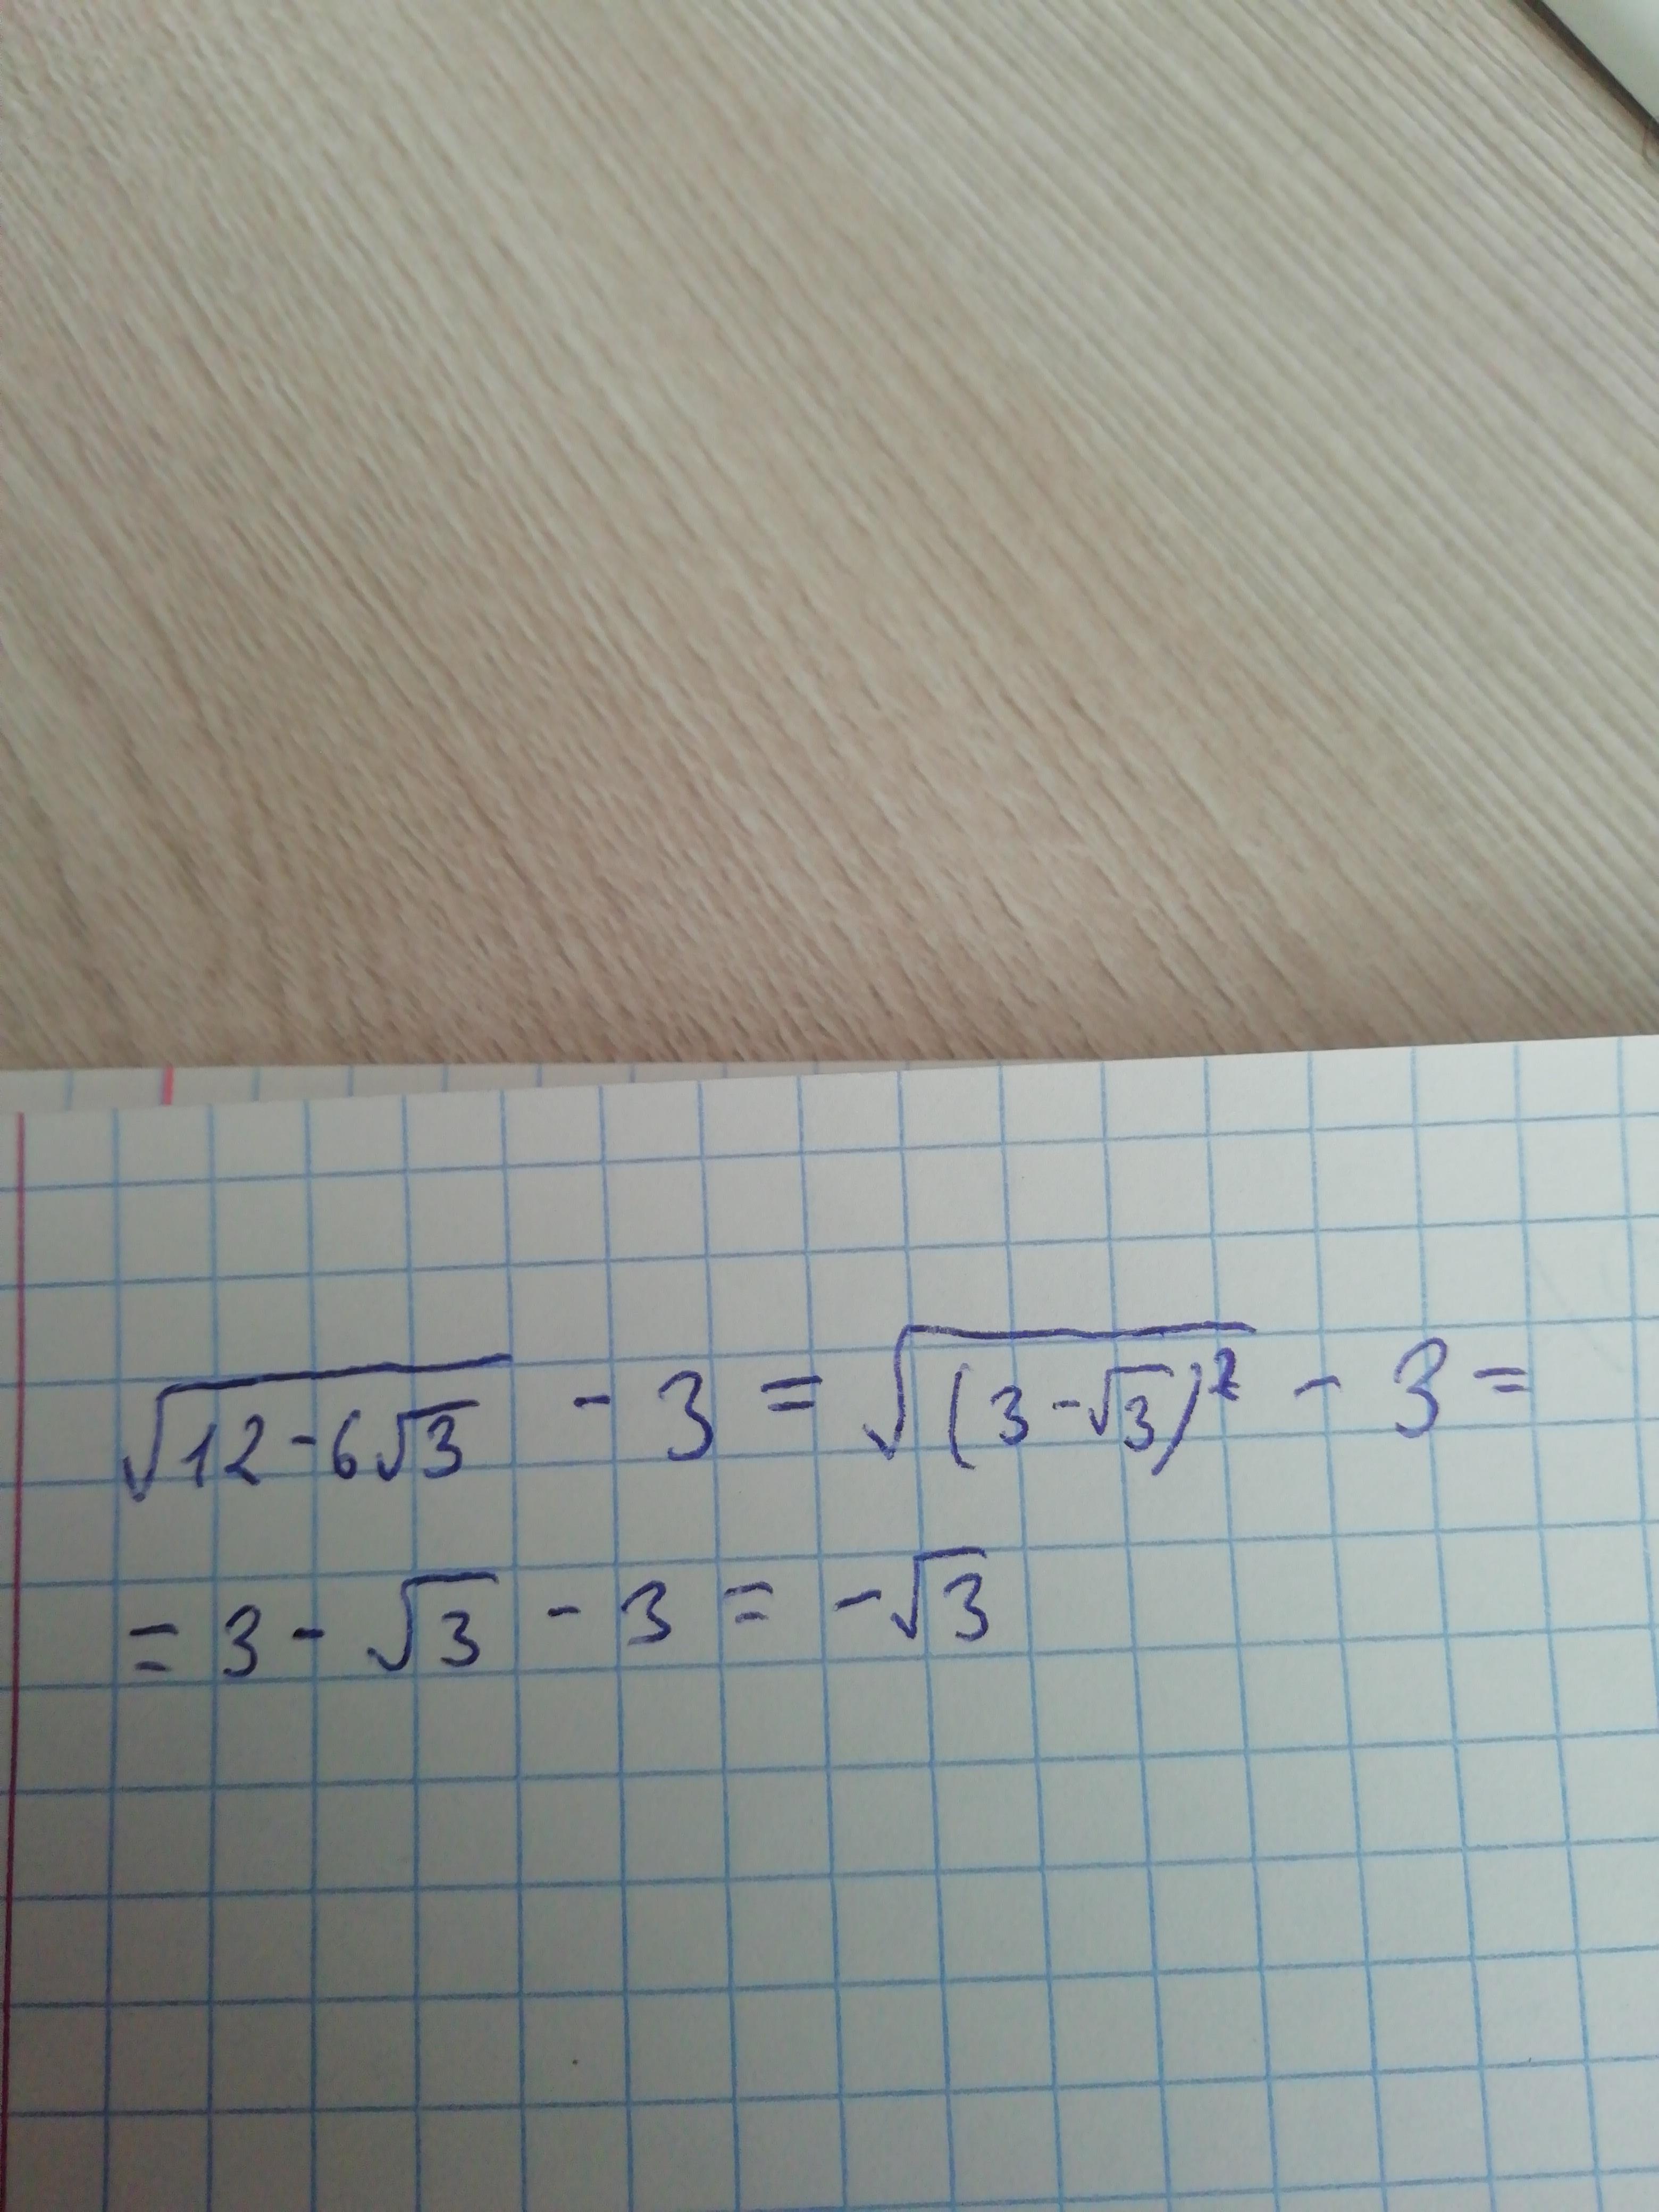 √(12-6√3) - 3 = √((3-√3)²) - 3 =
= 3 - √3 - 3 = -√3